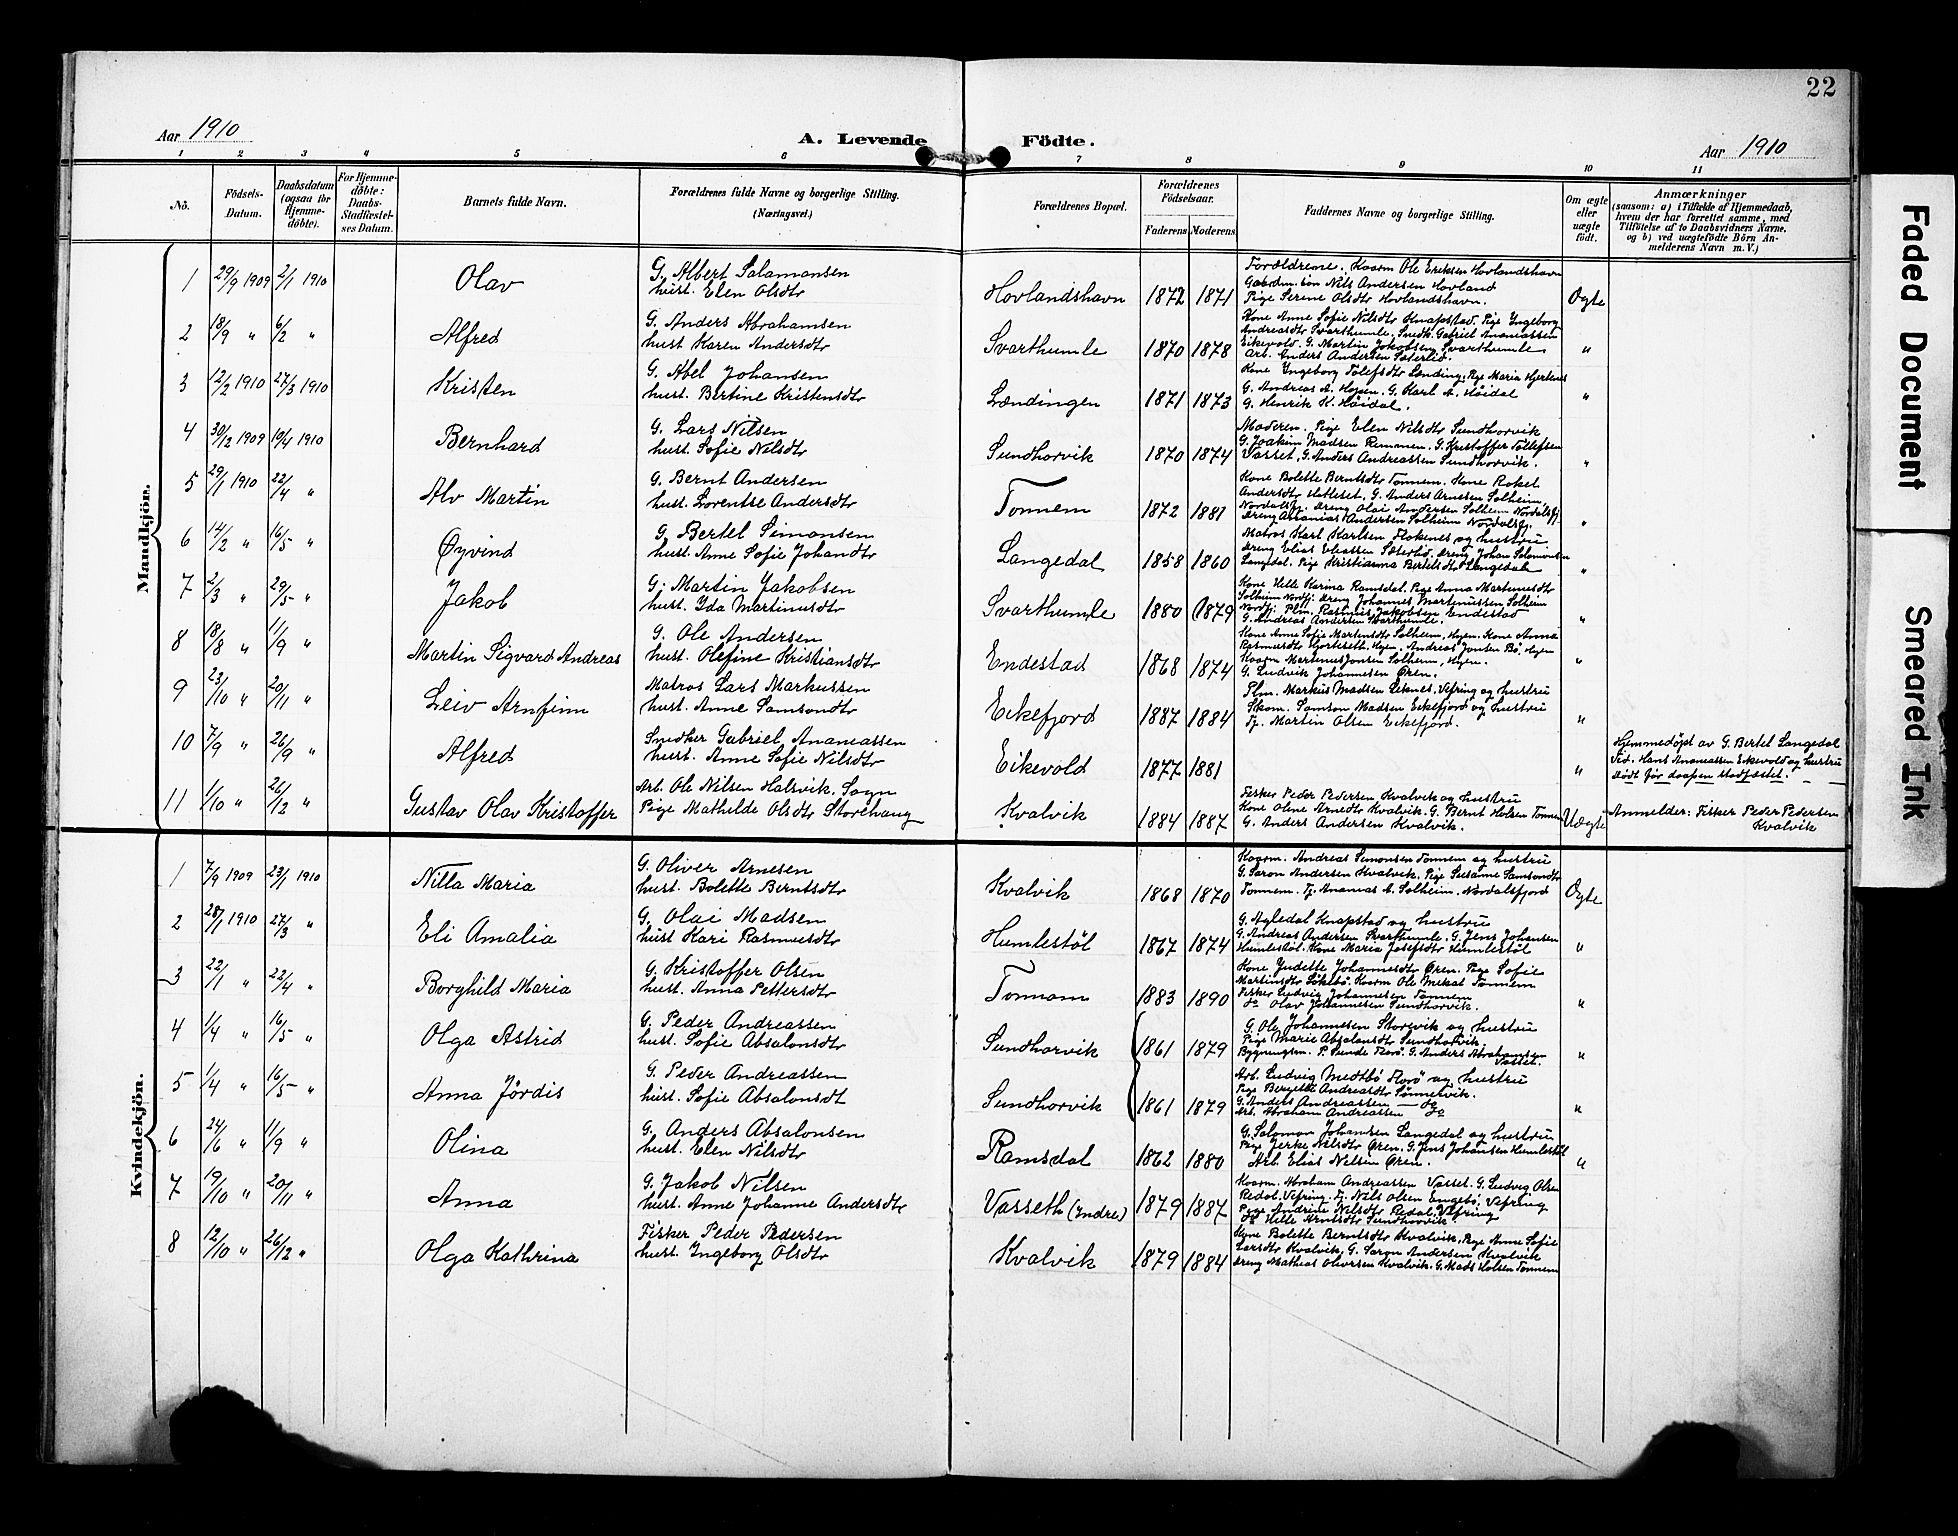 22
Aar 1910
A. Levende Födte.
Aar 1910
1 2 3 4 5 6 7 8 9 10 11
No.
Födsels-Datum.
Daabsdatum (ogsaa for Hjemme-döbte).
For Hjemme-döbte: Daabs-Stadfæstel-ses Datum.
Barnets fulde Navn.
Forældrenes fulde Navne og borgerlige Stilling. (Næringsvei.)
Forældrenes Bopæl.
Forældrenes Födselsaar.
Faderens Moderens
Faddernes Navne og borgerlige Stilling.
Om ægte eller uægte födt.
Anmærkninger
(saasom: a) i Tilfælde af Hjemmedaab, hvem der har forrettet samme, med Tilföielse af to Daabsvidners Navne. og b) ved uægtefödte Börn Anmelderens Navn m. V.)
Mandkjön.
1 29/9 1909 2/1 1910 Olav
G. Albert Salamonsen
hust. Elen Olsdtr
Hovlandshavn 1872 1871
Forældrene. Kaarm Ole Eriksen Hovlandshavn
Gabrdm. søn Nils Andersen Hovland
Pige Serine Olsdtr Hovlandshavn.
Ægte
2 18/9 " 6/2 " Alfred
G. Anders Abrahamsen
hust Karen Andersdtr
Svarthumle 1870 1878
Kone Anne Sofie Nilsdtr Knapstad. Pige Ingeborg
Andreasdtr Svarthumle. Snedk. Gabriel Ananiassen
Eikevold. G. Martin Jakobsen Svarthumle
Arb. Anders Andersen Sæterlid.
"
3 12/2 1910 27/3 1910 Kristen
G. Abel Johansen
hust. Bertine Kristensdtr
Lændingen 1871 1873
Kone Ingeborg Tolefsdtr Lænding. Pige Maria Hjertenes
G. Andreas A. Hopen. G. Karl A. Høidal
G. Henrik K. Høidal.
"
4 30/12 1909 19/4 1910 Bernhard
G. Lars Nilsen
hust. Sofie Nilsdtr
Sundhorvik 1870 1874
Moderen. Pige Elen Nilsdtr Sundhorvik
G. Joakim Madsen Remmen. G. Kristoffer Tollefsen
Vasset, G. Anders Andreassen Sundhorvik.
"
5 29/1 1910 22/4 " Alv Martin
G. Bernt Andersen
hust. Lorentse Andersdtr
Tonnem 1872 1881
Kone Bolette Berntsdtr Tonnem. Kone Rakel
Andersdtr Hatleset. G. Anders Arnesen Solheim,
Nordalsfj. dreng Olai Andersen Solheim Nordalsfj.
dreng Ananias Andersen Solheim Nordalsfj.
"
6 14/2 " 16/5 " Øyvind
G. Bertel Simonsen
hust. Anne Sofie Johandtr
Langedal 1858 1860
Matros Karl Karlsen Flokenes og hustru
dreng Elias Eliassen Sæterlid. dreng Johan Salomonsen
Langedal. Pige Kristianna Bertelsdtr Langedal
"
7 2/3 " 29/5 " Jakob
G. Martin Jakobsen
hust. Ida Martinusdtr
Svarthumle 1880 1879
Kone Helle Karina Ramsdal. Pige Anna Martinusdtr
Solheim Nordfj. dreng Johannes Martinussen Solheim
Nordfj. Plm. Rasmus Jakobsen Endestad
G. Andreas Andersen Svarthumle.
"
8 18/8 " 11/9 " Martin Sigvard Andreas
G. Ole Andersen
hust. Olefine Kristiansdtr
Endestad 1868 1874
Kone Anne Sofie Martensdtr Solheim, Hyen. Kone Anne
Rasmusdtr Hjorteseth. Hyen. Andreas Jonsen Bø, Hyen
Kaarm Martenus Jonsen Solheim, Hyen.
G. Ludvik Johannesen Øren.
"
9 23/10 " 20/11 " Leiv Arnfinn
Matros Lars Markussen
hust. Anne Samsondtr
Eikefjord 1887 1884
Plm. Markus Madsen Leknes, Vefring og hustru
Skom. Samson Madsen Eikefjord og hustru
Tj. Martin Olsen Eikefjord.
"
10 7/9 " 26/9 " Alfred
Snedker Gabriel Ananiassen
hust. Anne Sofie Nilsdtr
Eikevold 1877 1881
"
Hjemmedøpt av G. Bertel Langedal
Vid. Hans Ananiassen Eikevold og hustru
Dødt før daapen stadfæstet.
11 1/10 " 26/12 " Gustav Olav Kristoffer
Arb. Ole Nilsen Halsvik, Sogn
Pige Mathilde Olsdtr Storehaug
Kvalvik 1884 1887
Fisker Peder Pedersen Kvalvik og hustru
Kone Oline Arnedtr Kvalvik. G. Bernt Holsen Tonnem
G. Anders Andersen Kvalvik.
Uægte
Anmelder: Fisker Peder Pedersen
Kvalvik
Kvindekjön.
1 7/9 1909 23/1 1910 Nilla Maria
G. Oliver Arnesen
hust. Bolette Berntsdtr
Kvalvik 1868 1870
Kaarm. Andreas Simonsen Tonnem og hustru
G. Saron Andersen Kvalvik. Pige Susanne Samsondtr
Tonnem. Tj. Ananias A. Solheim, Nordalsfjord
Ægte
2 28/1 1910 27/3 " Eli Amalia
G. Olai Madsen
hust Kari Rasmusdtr
Humlestøl 1867 1874
G. Agledal Knapstad og hustru
G. Andreas Andersen Svarthumle. G. Jens Johansen
Humlestøl. Kone Maria Josefsdtr Humlestøl
"
3 22/1 " 22/4 " Borghild Maria
G. Kristoffer Olsen
hust. Anna Pettersdtr
Tonnem 1883 1890
Kone Judette Johannesdtr Øren. Pige Sofie
Martinsdtr Løkebø. Kaarm Ole Mekal Tonnem
Fisker Ludvig Johannesen Tonnem
do Olav Johannesen Sundhorvik.
"
4 1/4 " 16/5 " Olga Astrid
G. Peder Andreassen
hust. Sofie Absalonsdtr
Sundhorvik 1861 1879
G. Ole Johannesen Storevik og hustru
Pige Marie Absalonsdtr Sundhorvik.
Bygningsm. P. Sunde Florø. G. Anders Abrahamsen
Vasset.
"
5 1/4 " 16/5 " Anna Jördis
G. Peder Andreassen
hust. Sofie Absalonsdt
Sundhorvik 1861 1879
Arb. Ludvig Medtbø Florø og hustru
Pige Bergitte Andreasdtr Sønnervik.
G. Anders Andreassen do
Arb. Abraham Andreassen do
"
6 24/6 " 11/9 " Olina
G. Anders Absalonsen
hust. Elen Nilsdtr
Ramsdal 1862 1880
G. Salomon Johansen Langedal og hustru
Pige Jerke Nilsdtr Øren. G. Jens Johansen Humlestøl
Arb. Elias Nilsen Øren.
"
7 19/10 " 20/11 " Anna
G. Jakob Nilsen
hust. Anne Johanne Andersdtr
Vasseth (Indre) 1879 1887
Kaarm. Abraham Andreassen Vasset. G. Ludvig Olsen
Redal, Vefring. Tj. Nils Olsen Engebø, Vefring
Pige Andrine Nilsdtr Redal, Vefring
do Helle Arntsdtr Sundhorvik
8 12/10 " 26/12 " Olga Kathrina
Fisker Peder Pedersen
hust. Ingeborg Olsdtr
Kvalvik 1879 1884
Kone Bolette Berntsdtr Kvalvik. Pige Anne Sofie
Larsdtr Kvalvik, G. Saron Andersen Kvalvik
dreng Mathias Oliversen Kvalvik. G. Mads Holsen Tonnem
Faded Document
Smeared Ink